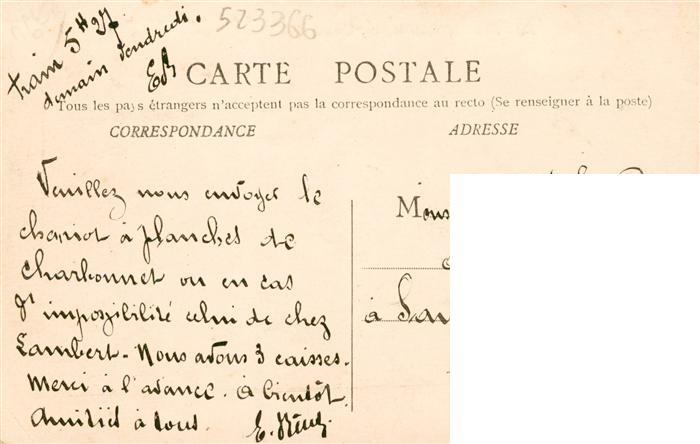 train 5H27
demain Vendredi.
523366
CARTE POSTALE
Tous les pays étrangers n'acceptent pas la correspondance au recto (Se renseigner à la poste)
CORRESPONDANCE
ADRESSE
Veuillez nous envoyer le
chariot à planches de
Charbonnet ou en cas
d'impossibilité celui de chez
Lambert. Nous avons 3 caisses.
Merci à l'avance. à bientôt.
Amitiés à tous. E.
Mons
à